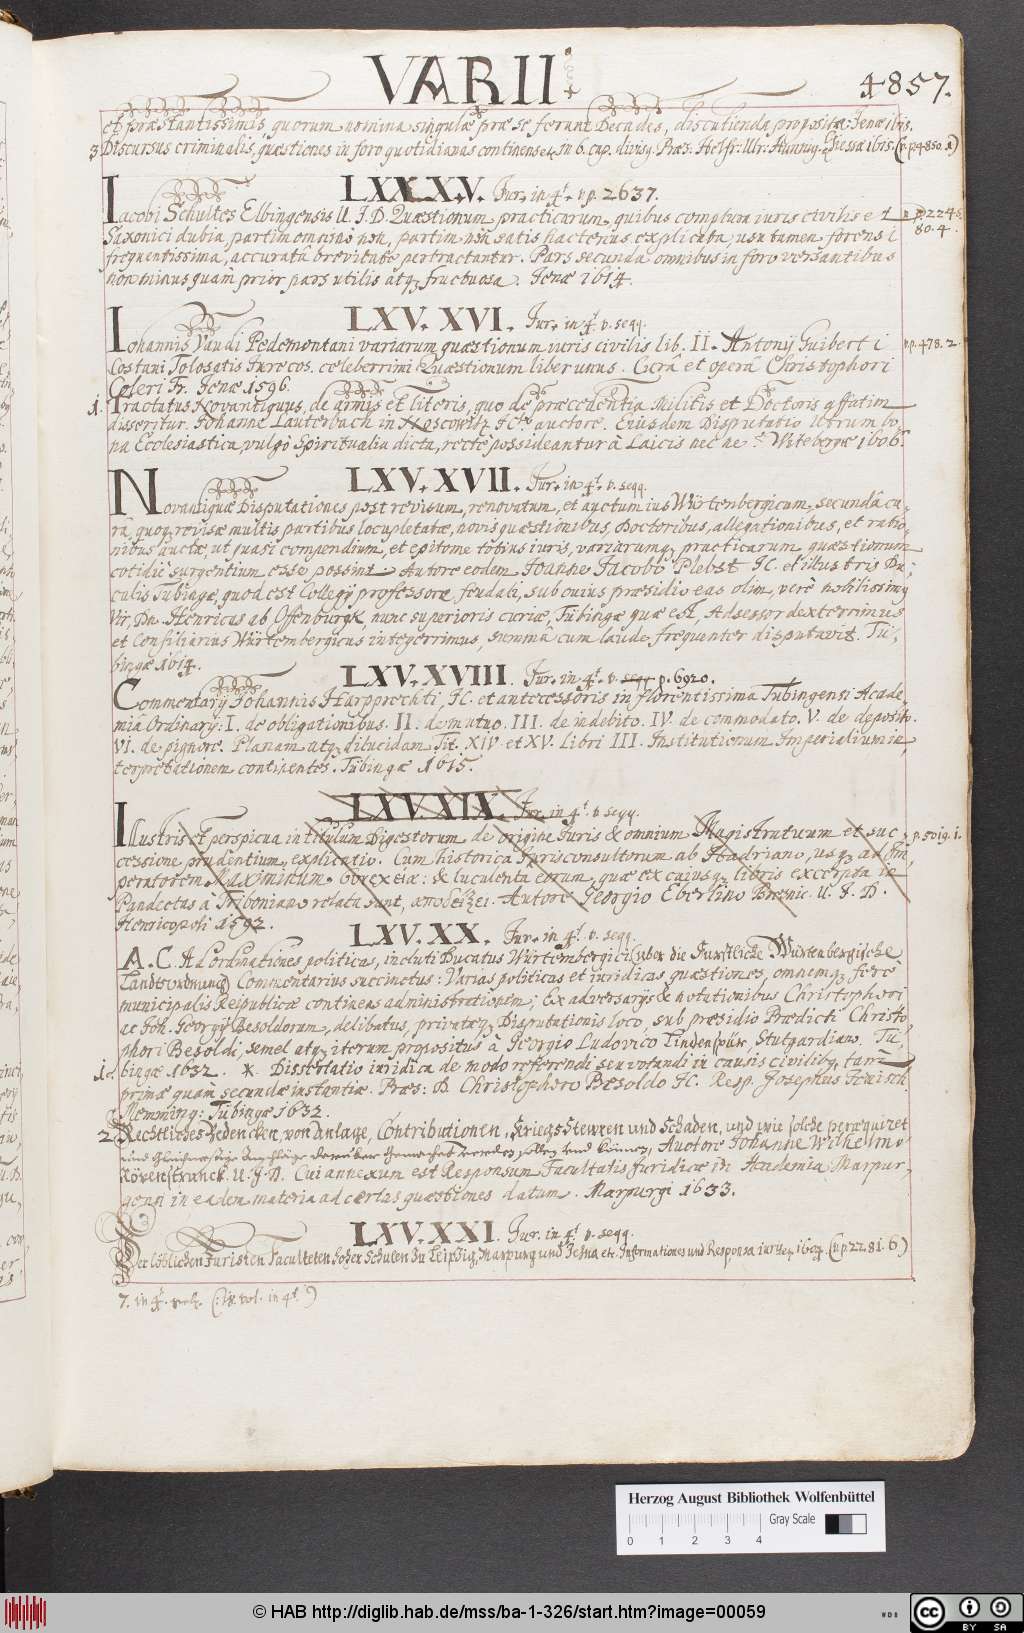 VARII
4857.
et præstantissimis, quorum nomina singulæ præ se ferunt Decades, discutienda propositæ. Jenæ 1615.
3. Discursus criminalis, quæstiones in foro quotidianas continens etc. in 6. cap. divisg. Præs. Helfr: Ulr: Hunnig. Giessæ 1615. (v. p. 4850. 1)
LXV.XV. Jur. in 4t. v. p. 2637.
Iacobi Schultes Elbingensis U. J. D. Quæstionum practicarum, quibus complura iuris civilis et
v. p. 224
80. 4.
Saxonici dubia, partim omninò non, partim non satis hactenus explicata, usu tamen forensi
frequentissima, accuratâ brevitate pertractantur. Pars secunda omnibus in foro versantibus
non minus quàm prior pars utilis atq3 fructuosa. Jenæ 1614.
LXV. XVI. Jur. in 4t. v. seqq.
Iohannis Vaudi Pedemontani variarum quæstionum iuris civilis lib. II. Antonij Guiberti
v. p. 478. 2.
Costani Tolosatis Jurecos. celeberrimi Quæstionum liber unus. Curâ et operâ Christophori
Coleri Fr. Jenæ 1596.
1. Tractatus Novantiquus, de armis et literis, quo de præcedentia Militis et Doctoris affatim
disseritur. Johanne Lauterbach in Noscowitz JCto auctore. Eiusdem Disputatio Utrum bo-
na Ecclesiastica, vulgò Spiritualia dicta, rectè possideantur à Laicis nec ne? Witebergæ 1606.
LXV. XVII. Jur. in 4t. v. seqq.
Novantiquæ Disputationes post revisum, renovatum, et auctum ius Würtenbergicum, secundâ cu-
râ, quoq3 revisæ multis partibus locupletatæ, novis quæstionibus, Doctoribus, allegationibus, et ratio-
nibus auctæ, ut quasi compendium, et epitome totius iuris, variarumq3 practicarum quæstionum
cotidiè surgentium esse possint. Autore eodem Joanne Jacobo Plebst JC. et illustris Du-
calis Tubingæ, quod est Collegij professore, feudali, sub cuius præsidio eas olim, verè nobilissimq
Vir, Dn. Henricus ab Offenburgk, nunc superioris curiæ, Tubingæ quæ est, Adsessor dexterrimus
et Consiliarius Würtembergicus integerrimus, summâ cum laude, frequenter disputavit. Tu-
bingæ 1614.
LXV. XVIII. Jur. in 4t. v. seqq p. 6920.
Commentarij Johannis Harpprechti, JC. et antecessoris in florentissima Tubingensi Acade-
mia Ordinarij: I. de obligationibus. II. de mutuo. III. de indebito. IV. de commodato. V. de deposito.
VI. de pignore. Planam atq3 dilucidam Tit. XIV et XV. libri III. Institutionum Imperialium in-
terpretationem continentes. Tubingæ 1615.
LXV. XIX. Jur. in 4t. v. seqq.
Illustris et perspicua in titulum Digestorum de origine Juris & omnium Magistratuum et suc-
v. p. 5019. 1.
cessione prudentium, explicatio. Cum historica Jurisconsultorum ab Hadriano, usq3 ad Im-
peratorem Maximinum & luculenta eorum, quæ ex cuiusq3 libris excerpta in
Pandectas à Triboniano relata sunt, Autore Georgio Eberlino U. J. D.
Henricopoli 1592.
LXV. XX. Jur. in 4t. v. seqq.
A. C. Ad ordinationes politicas, incluti Ducatus Würtembergici (uber die Furstliche Würtenbergische
Landtsordnung) Commentarius succinctus: Varias politicas et iuridicas quæstiones, omnemq3 ferè
municipalis Reipublicæ continens administrationem; Ex adversarijs & notationibus Christophori
ac Joh. Georgij Besoldorum, delibatus, privatæq3 Disputationis loco, sub præsidio Prædicti Christo-
phori Besoldi, semel atq3 iterum propositus à Georgio Ludovico Lindenspür, Stutgardiano. Tu-
bingæ 1632.
1. Dissertatio iuridica de modo referendi seu votandi in causis civilibq3 tam
primæ quàm secundæ instantiæ. Præs: D. Christophoro Besoldo JC. Resp. Josephus Jenisch
Memming: Tubingæ 1632.
2. Rechtliches Bedencken, von Anlage, Contributionen, Kriegs Stewren und Schaden, und wie solche peræquiret
Auctore Johanne Wilhelmo
Rövenstrunck. U. J. D. Cui annexum est Responsum Facultatis Juridicæ in Academia Marpur-
gensi in eadem materia ad certas quæstiones datum. Marpurgi 1633.
LXV. XXI. Jur. in 4t. v. seqq.
Der löblichen Juristen Faculteten, hoher Schulen zu Leipzig, Marpurg und Jehna etc. Informationes und Responsa iuris. (v. p. 2281. 6.)
7. in 4t. (: ix vol. in 4t.)
Herzog August Bibliothek Wolfenbüttel
Gray Scale
0 1 2 3 4
© HAB http://diglib.hab.de/mss/ba-1-326/start.htm?image=00059
WDB
cc BY SA